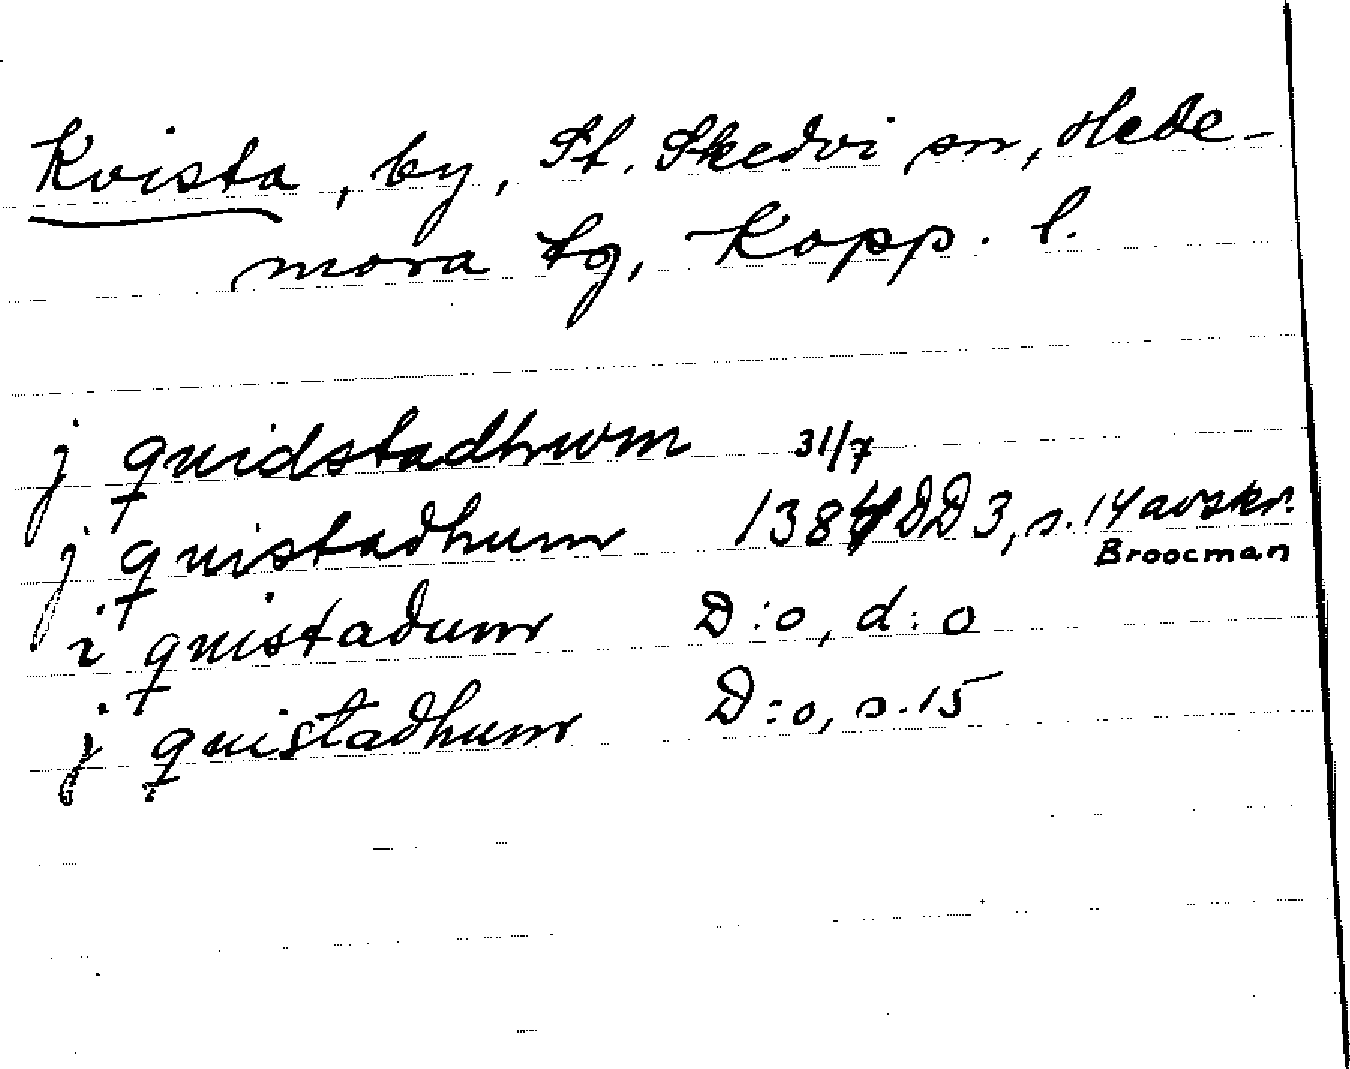 Kvista, by, St. Skedvi sn, Hede-
mora tg, Kopp. l.
j quidstadhwm 31/7
j quistadhum 1384 DD 3, s. 14 avskr.
Broocman
i quistadum D:o, d:o
j quistadhum D:o, s. 15